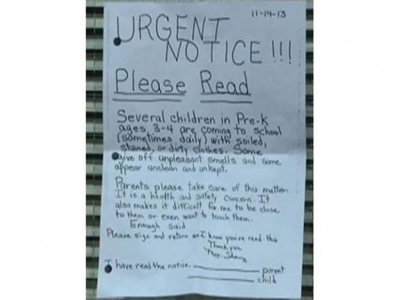 11-14-13
URGENT
NOTICE!!!
Please Read
Several children in Pre-K
ages, 3-4 are coming to school
(sometimes daily) with soiled,
stained, or dirty clothes. Some
give off unpleasant smells and some
appear unclean and unkept.
Parents please take care of this matter.
It is a health and safety concern. It
also makes it difficult for me to be close
to them or even want to touch them.
Enough said
Please sign and return so I know you've read this
Thank you,
I have read the notice. parent
child